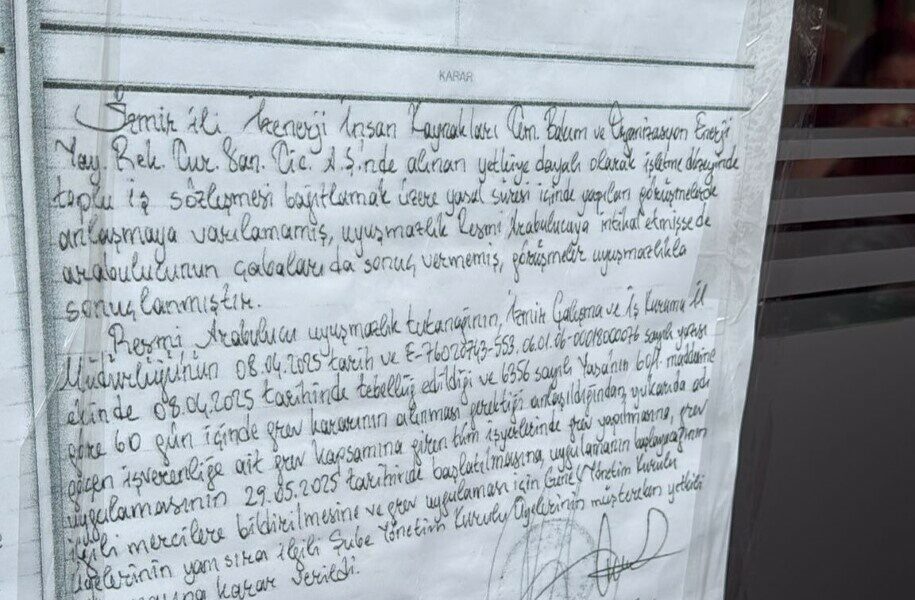 KARAR
İzmir ili İzenerji İnsan Kaynakları Tem. Bakım ve Organizasyon Enerji
Yay. Rek. Tur. San. Tic. A.Ş.'nde alınan yetkiye dayalı olarak işletme düzeyinde
toplu iş sözleşmesi bağıtlamak üzere yasal süresi içinde yapılan görüşmelerde
anlaşmaya varılamamış, uyuşmazlık Resmi Arabulucuya intikal etmişse de
arabulucunun çabaları da sonuç vermemiş, görüşmeler uyuşmazlıkla
sonuçlanmıştır.
Resmi Arabulucu uyuşmazlık tutanağının, İzmir Çalışma ve İş Kurumu İl
Müdürlüğünün 08.04.2025 tarih ve E-76028743-553.06.01.06-00018000076 sayılı yazısı
ekinde 08.04.2025 tarihinde tebellüğ edildiği ve 6356 sayılı Yasa'nın 60/1 maddesine
göre 60 gün içinde grev kararının alınması gerektiği anlaşıldığından, yukarıda adı
geçen işverenliğe ait grev kapsamına giren tüm işyerlerinde grev yapılmasına, grev
uygulamasının 29.05.2025 tarihinde başlatılmasına, uygulamanın başlayacağının
ilgili mercilere bildirilmesine ve grev uygulaması için Genel Yönetim Kurulu
Üyelerinin yanı sıra ilgili Şube Yönetim Kurulu Üyelerinin müştereken yetkili
karar verildi.